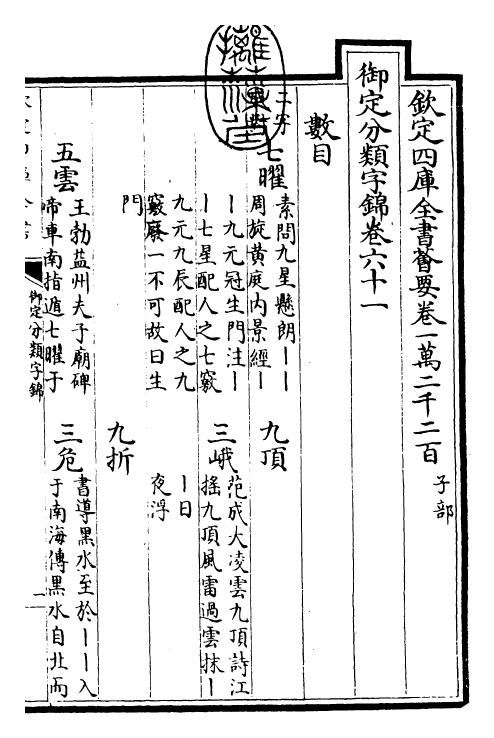 欽定四庫全書薈要卷一萬二千二百 子部
御定分類字錦卷六十一
數目
二字
七曜 素問九星懸朗丨丨
周旋黃庭內景經丨
丨九元冠生門注丨
丨七星配人之七竅
九元九辰配人之九
竅廢一不可故曰生
門
九頂
三峨 范成大凌雲九頂詩江
搖九頂風雷過雲抹丨
丨日
夜浮
五雲 王勃益州夫子廟碑
帝車南指遁七曜于
九折
三危 書導黑水至於丨丨入
于南海傳黑水自北而
御定分類字錦
一